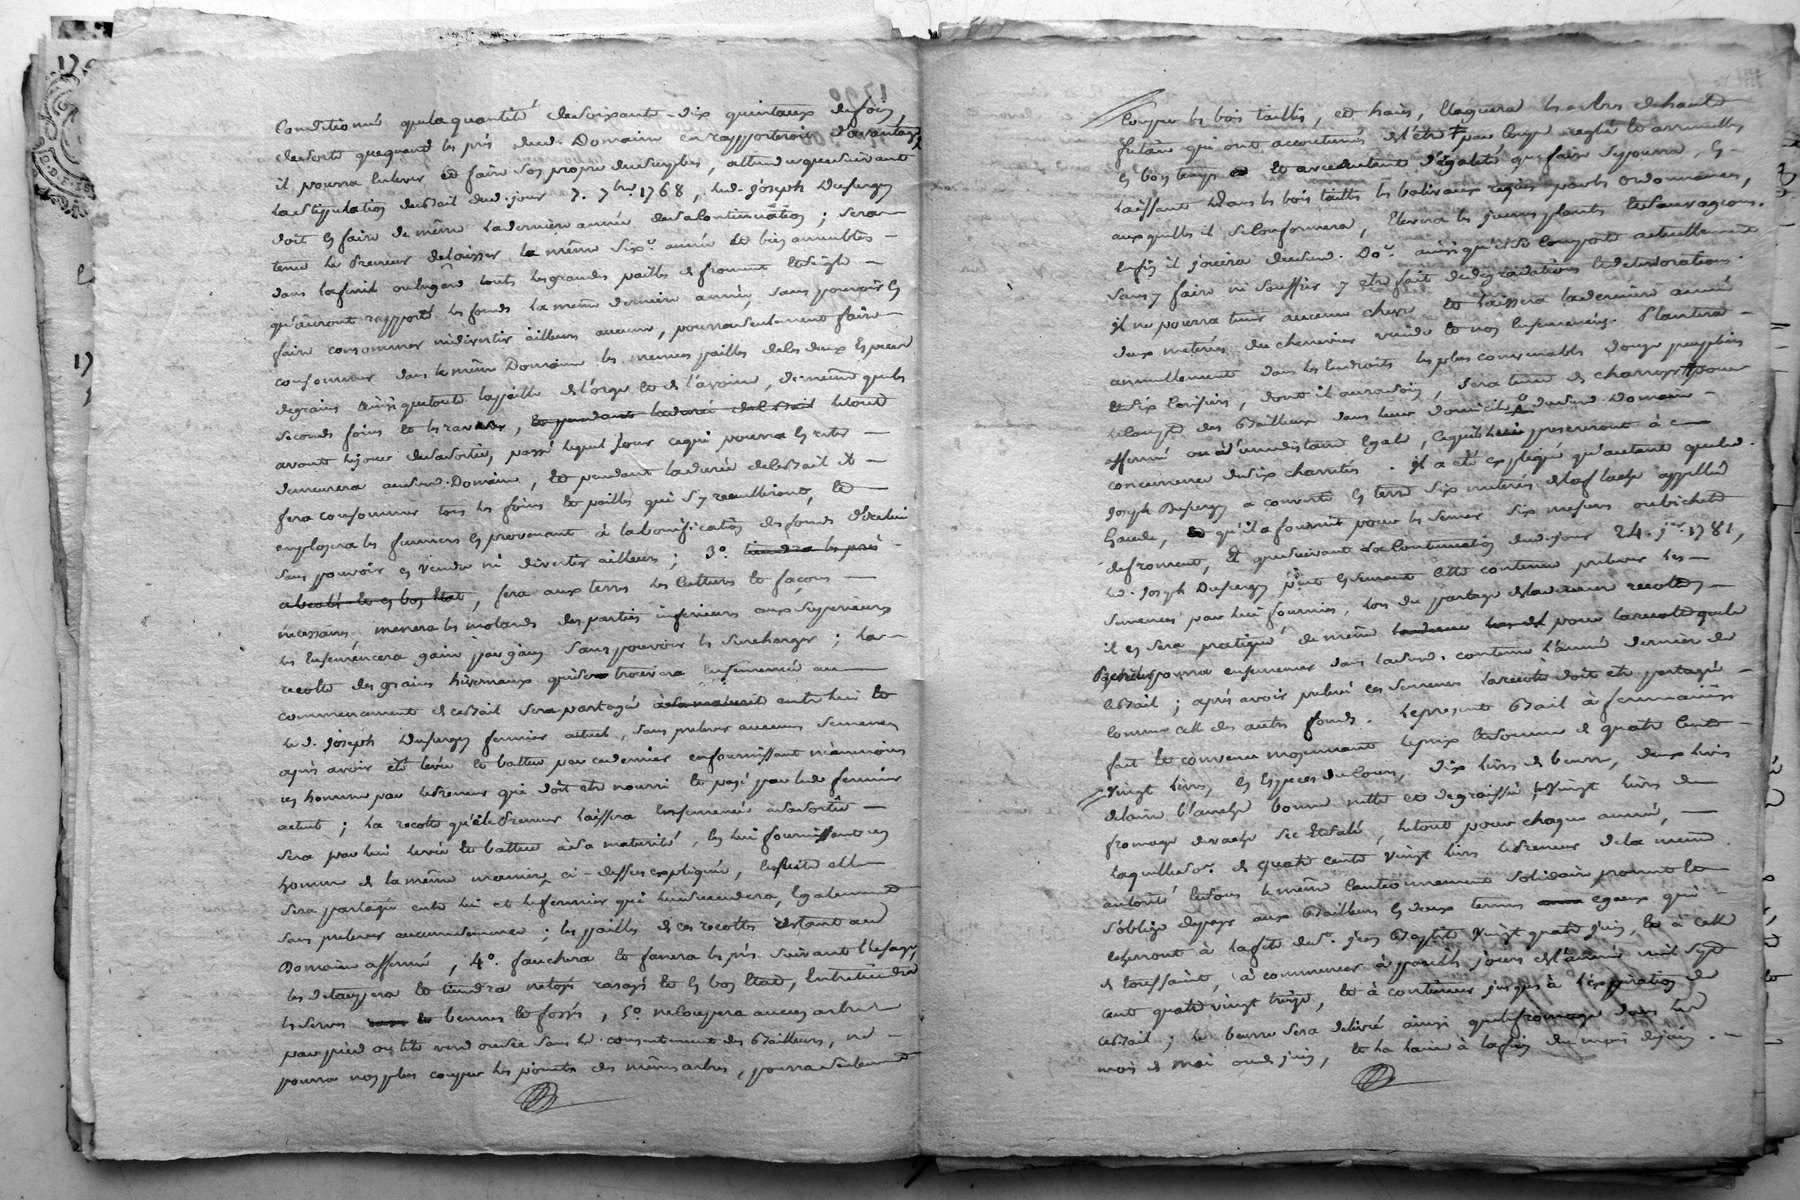 1790
Conditionné que la quantité de soixante-dix quintaux de foin
de sorte que quand les prés dud. Domaine en rapporteroit d'avantage
il pourra enlever et faire son propre du surplus, attendu que suivant
la stipulation du bail dud. jour 7. 7bre 1768, led. Joseph Dupergy
doit en faire de même la dernière année de sa Continuation ; sera
tenu le Preneur de laisser la même six.e année et bien ameublés
dans la fenil ou hangard touts les grandes pailles de froment et seigle
qu'auront rapporté les fonds la même dernière année, sans pouvoir en
faire consommer ni divertir ailleurs aucune, pourra seulement faire
consommer dans le même Domaine les menues pailles de les deux Especes
de grains ainsi que toute la paille de l'orge et de l'avoine, de même que les
seconds foins et les ravures, et pendant la durée du bail le tout
avant le jour de sa sortie, passé lequel jour ce qui pourra en rester
demeurera aud. Domaine, et pendant la durée de ce bail il
fera consommer tous les foins et pailles qui s'y recueilliront, et
employera les fumiers en provenant à la bonification des fonds d'icelui
sans pouvoir en vendre ni divertir ailleurs ; 3.o tiendra les prés
abeali et en bon Etat, fera aux terres les cultures et façons
nécessaires, menera les molards des parties inferieures aux superieures
les Ensemencera gain par gain sans pouvoir les surcharger ; la
recolte des grains hivernaux qui se trouvera ensemencée au
commencement de ce bail sera partagée à sa maturité entre lui et
led. Joseph Dupergy fermier actuel, sans prelever aucunes semences
après avoir été levée et battue par ce dernier en fournissant néanmoins
un homme par le Preneur qui doit être nourri et payé par led. fermier
actuel ; la recolte que le Preneur laissera ensemencée à sa sortie
sera par lui levée et battue à sa maturité, en lui fournissant un
homme de la même maniere ci-dessus expliquée, ensuite elle
sera partagée entre lui et le fermier qui lui succedera, Egalement
sans prelever aucune semence ; les pailles de ces recoltes restant au
Domaine affermé, 4.o fauchera et fanera les prés suivant l'usage,
les detaupera et tiendra netoyés rasés et en bon Etat, Entretiendra
les serves bennes et fossés, 5.o ne coupera aucun arbre
par pied ou tête verd ou sec sans le consentement des Bailleurs, ne
pourra non plus couper les pointes des mêmes arbres, pourra seulement
Couper les bois taillis, et haies, Elaguera les arbres de haute
futaie qui ont accoutumés de l'être par coupe reglée et annuelles
en bon temps et avec autant d'égalité que faire se pourra, en
laissant dans les bois taillis les baliveaux requis par les ordonnances,
auxquelles il se conformera, Elevera les jeunes plants et sauvageons.
Enfin il jouira dud. Do.e ainsi qu'il se comporte actuellement
sans y faire ni souffrir y être fait degradations et deteriorations.
Il ne pourra tenir aucune chevre et laissera la derniere année
deux meterées de chenevier vuide et non Ensemencées. Plantera
annuellement dans les Endroits les plus convenables douze peupliers
et six Cerisiers, dont il aura soin, sera tenu de charroyer pour
le compte des Bailleurs dans leur domicile dud. Domaine
affermé ou à une distance Egale, ce qu'ils lui prescriront à
concurrence de six charretées. Il a été expliqué qu'autant que led.
Joseph Dupergy a converti en terre six meterées de la flache appellée
haude, et qu'il a fourni pour les semer six mesures ou bichets
de froment, et que suivant sa Continuation dud. jour 24. j.er 1781,
led. Joseph Dupergy peut ensemencer cette contenue prelever les
semences par lui fournies, lors du partage de la derniere recolte,
il en sera pratiqué de même pour la recolte que le
Preneur pourra ensemencer dans lad. contenue l'année derniere de
ce bail ; après avoir prelevé ces semences la recolte doit être partagée
comme celle des autres fonds. Le present Bail à ferme ainsi
fait et convenu moyennant le prix et somme de quatre cent
vingt livres, en Especes de cours, dix livres de beurre, deux livres
de laine blanche bonne nette et degraissée, et vingt livres de
fromage de vache sec et salé, le tout pour chaque année,
laquelle so.e de quatre cents vingt livres le Preneur de la même
autorité et sous le même Cautionnement solidaire promet et
s'oblige de payer aux Bailleurs en deux termes egaux qui
echerront à la fête de s.t Jean Baptiste vingt quatre juin, et à celle
de toussaint, à commencer à pareils jours de l'année mil sept
cent quatre vingt treize, et à continuer jusqu'à l'expiration de
ce bail ; le beurre sera delivré ainsi que le fromage dans les
mois de mai ou de juin, et la laine à la fin du mois de juin.